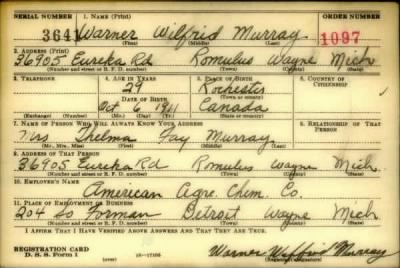 SERIAL NUMBER 1. NAME (Print) ORDER NUMBER
3641 Warner Wilfrid Murray 1097
(First) (Middle) (Last)
2. ADDRESS (Print)
36905 Eureka Rd Romulus Wayne Mich
(Number and street or R. F. D. number) (Town) (County) (State)
3. TELEPHONE 4. AGE IN YEARS 5. PLACE OF BIRTH 6. COUNTRY OF CITIZENSHIP
29 Rochester
DATE OF BIRTH (Town or county)
Oct 6, 1911 Canada
(Exchange) (Number) (Mo.) (Day) (Yr.) (State or country)
7. NAME OF PERSON WHO WILL ALWAYS KNOW YOUR ADDRESS 8. RELATIONSHIP OF THAT PERSON
Mrs Thelma Fay Murray
(Mr., Mrs., Miss) (First) (Middle) (Last)
9. ADDRESS OF THAT PERSON
36905 Eureka Rd Romulus Wayne Mich.
(Number and street or R. F. D. number) (Town) (County) (State)
10. EMPLOYER'S NAME
American Agre. Chem. Co.
11. PLACE OF EMPLOYMENT OR BUSINESS
204 So Forman Detroit Wayne Mich
(Number and street or R. F. D. number) (Town) (County) (State)
I AFFIRM THAT I HAVE VERIFIED ABOVE ANSWERS AND THAT THEY ARE TRUE.
REGISTRATION CARD
D. S. S. Form 1 Warner Wilfrid Murray
(Registrant's signature)